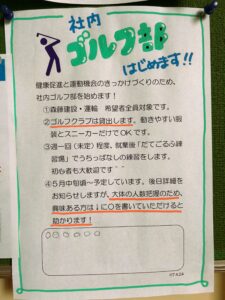 社内
ゴルフ部
はじめます!!
健康促進と運動機会のきっかけづくりのため、
社内ゴルフ部を始めます!
①森藤建設・運輸 希望者全員対象です。
②ゴルフクラブは貸出します。動きやすい服
装とスニーカーだけでOKです。
③週一回(未定)程度、就業後「だてごるふ練
習場」でうちっぱなしの練習をします。
初心者も大歓迎です
④5月中旬頃~予定しています。後日詳細を
お知らせしますが、大体の人数把握のため、
興味ある方は↓に○を書いていただけると
助かります!